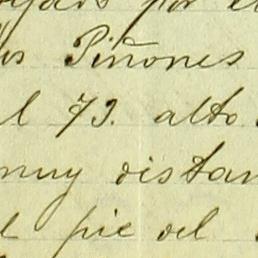 por el
Piñones
l 73. alto
muy distan
el pie del